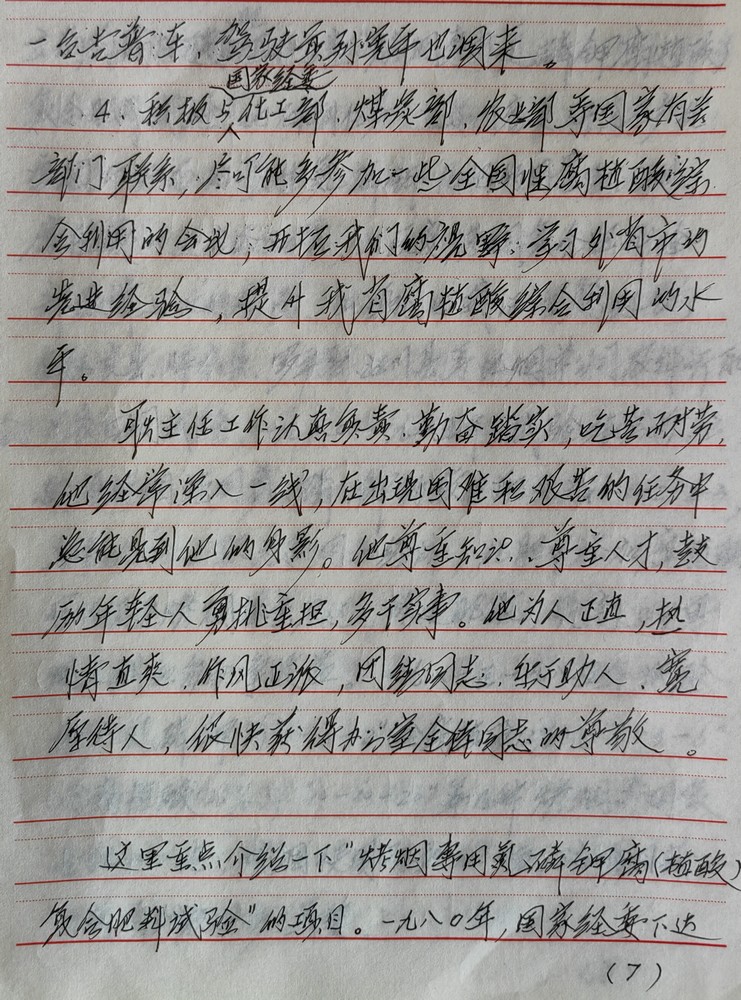 一台吉普车，驾驶员孙宪年也调来。
国家经委
4、积极与化工部、煤炭部、农业部等国家有关
部门联系，尽可能多参加一些全国性腐植酸综
合利用的会议，开拓我们的视野；学习外省市的
先进经验，提升我省腐植酸综合利用的水
平。
耿主任工作认真负责、勤奋踏实，吃苦耐劳，
他经常深入一线，在出现困难和艰苦的任务中
总能见到他的身影。他尊重知识、尊重人才，鼓
励年轻人勇挑重担，多干实事。他为人正直，热
情直爽、作风正派，团结同志、乐于助人、宽
厚待人，很快获得办公室全体同志的尊敬。
这里重点介绍一下"烤烟专用氮磷钾腐(植酸)
复合肥料试验"的项目。一九八〇年，国家经委下达
(7)